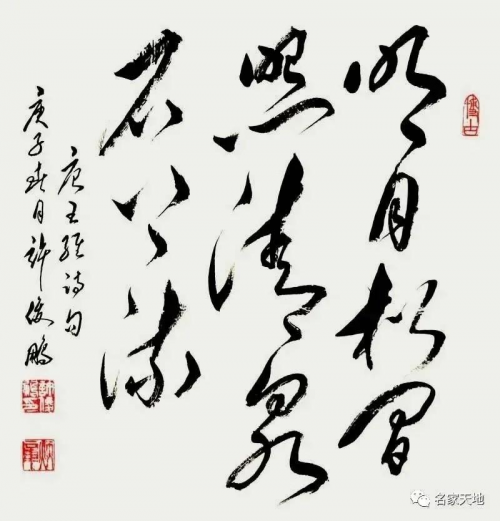 明月松间
照清泉
石上流
唐王维诗句
庚子春月许俊鹏
名家天地